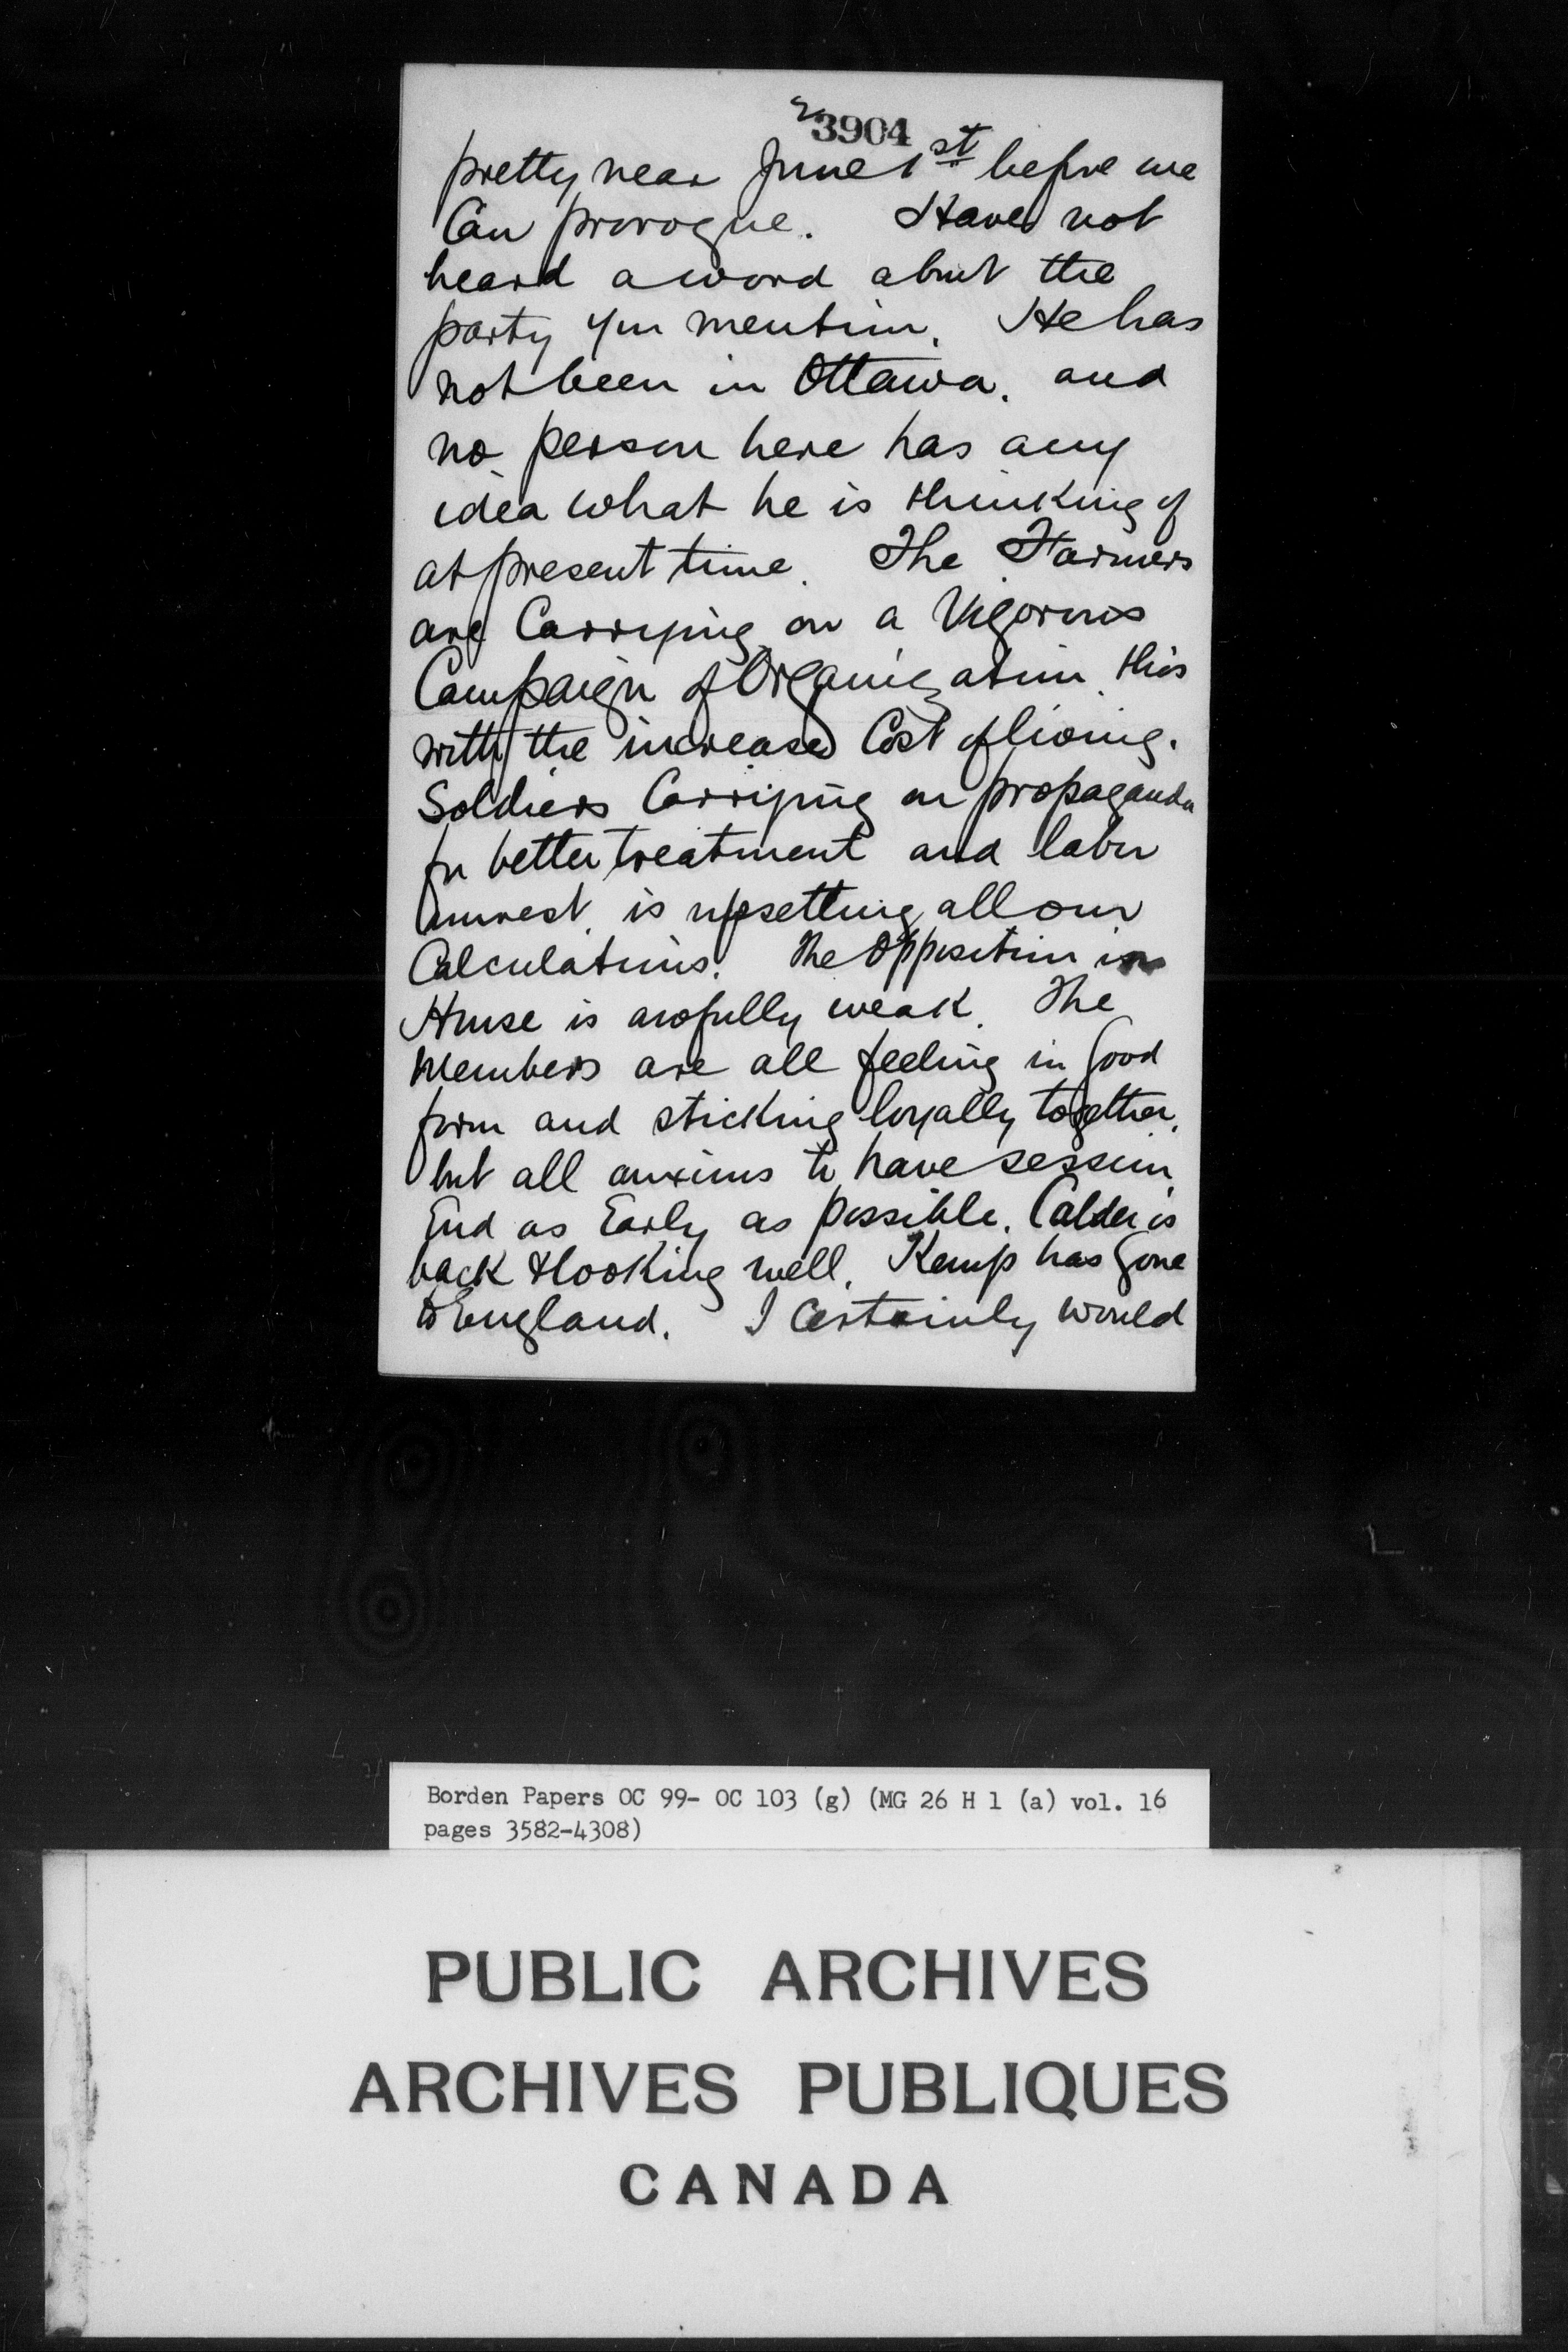 2
3904
pretty near June 1st before we
Can prorogue. Have not
heard a word about the
party you mention. He has
not been in Ottawa. and
no person here has any
idea what he is thinking of
at present time. The Farmers
are Carrying on a Vigorous
Campaign of Organization this
with the increased Cost of living.
Soldiers Carrying on propaganda
for better treatment and labor
unrest. is upsetting all our
Calculations. The Opposition in
House is awfully weak. The
Members are all feeling in good
form and sticking loyally together.
but all anxious to have session
End as Early as possible. Calder is
back & looking well. Kemp has gone
to England. I Certainly would
Borden Papers OC 99- OC 103 (g) (MG 26 H 1 (a) vol. 16
pages 3582-4308)
PUBLIC ARCHIVES
ARCHIVES PUBLIQUES
CANADA